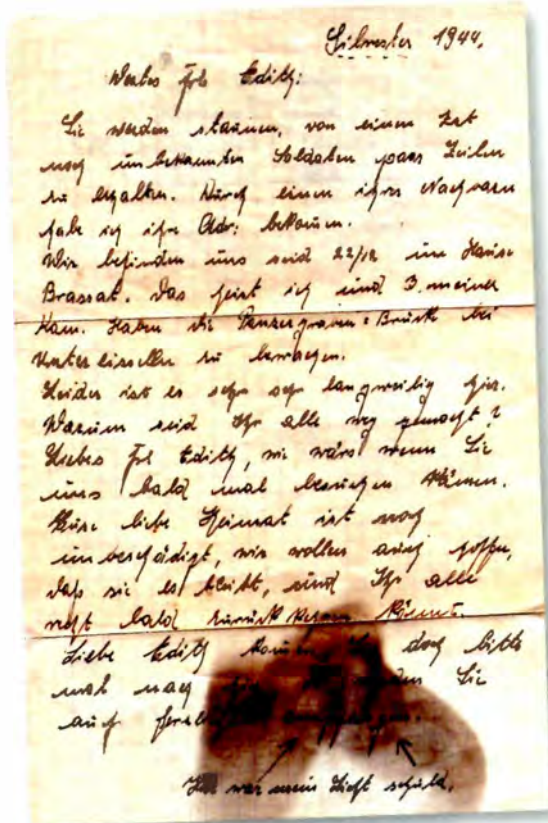 Silvester 1944.
Wertes Frl Edith:
Sie werden staunen, von einem Zat
noch unbekannten Soldaten paar Zeilen
zu erhalten. Durch einen ihrer Nachvarn
habe ich ihre Adr: bekomen.
Wir befinden uns seid 22/12 im Hause
Brassat. Das heist ich und 3. meiner
Kam. Haben die Panzergraben-Brück bei
Untereisseln zu bewachen.
Leider ist es sehr sehr langweilig hier.
Warum seid Ihr alle weg gemacht?
Liebes Frl Edith, wie wärs wenn Sie
uns bald mal besuchen kämen.
Eure liebe Heimat ist noch
unbeschädigt, wir wollen auch hoffen,
daß sie es bleibt, und Ihr alle
recht bald zurück keren könnt.
Liebe Edith komen Sie doch bitte
mal nach Sie
auf
Hir war mein Licht schuld.